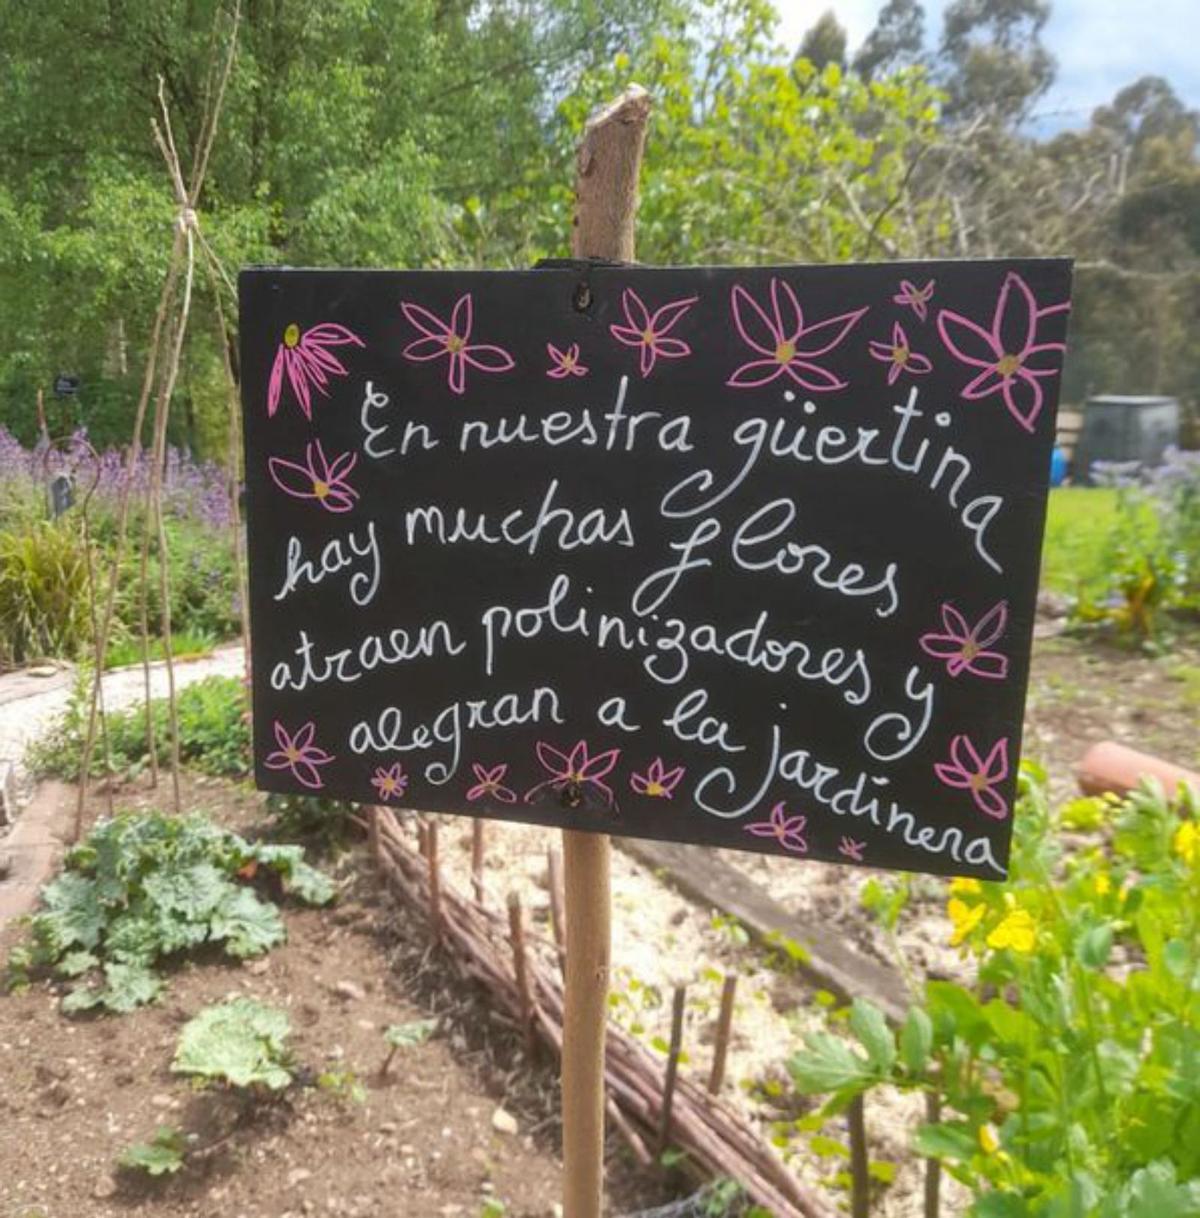 En nuestra güertina
hay muchas flores
atraen polinizadores y
alegran a la jardinera